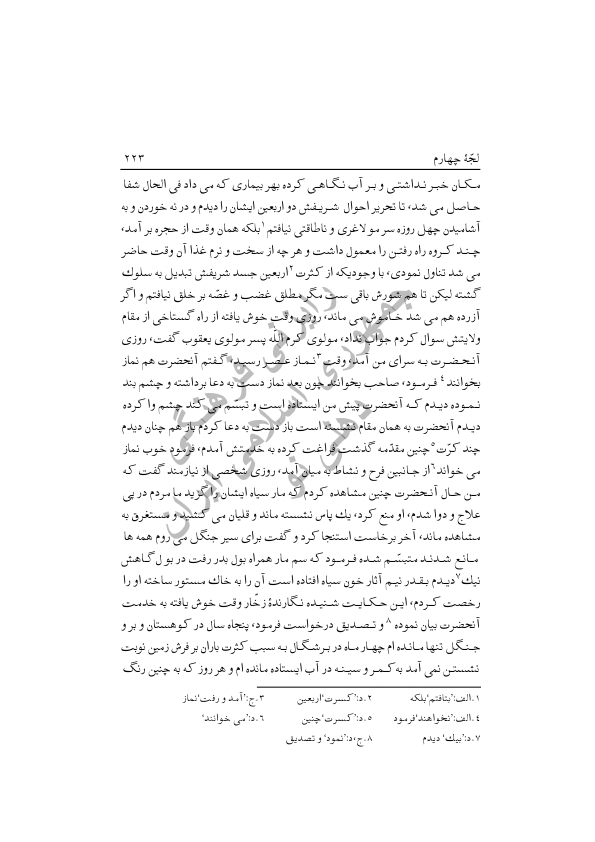 لجّهٔ چهارم ۲۲۳
مکان خبر نداشتی و بر آب نگاهی کرده بهر بیماری که می داد فی الحال شفا
حاصل می شد، تا تحریر احوال شریفش دو اربعین ایشان را دیدم و در نه خوردن و به
آشامیدن چهل روزه سر مو لاغری و ناطاقتی نیافتم۱بلکه همان وقت از حجره بر آمد،
چند کروه راه رفتن را معمول داشت و هر چه از سخت و نرم غذا آن وقت حاضر
می شد تناول نمودی، با وجودیکه از کثرت۲اربعین جسد شریفش تبدیل به سلوك
گشته لیکن تا هم شورش باقی ست مگر مطلق غضب و غصّه بر خلق نیافتم و اگر
آزرده هم می شد خاموش می ماند، روزی وقت خوش یافته از راه گستاخی از مقام
ولایتش سوال کردم جواب نداد، مولوی کرم اللّه پسر مولوی یعقوب گفت، روزی
آنحضرت به سرای من آمد، وقت۳نماز عصر رسید، گفتم آنحضرت هم نماز
بخوانند۴فرمود، صاحب بخوانند چون بعد نماز دست به دعا برداشته و چشم بند
نموده دیدم که آنحضرت پیش من ایستاده است و تبسّم می کند چشم وا کرده
دیدم آنحضرت به همان مقام نشسته است باز دست به دعا کردم باز هم چنان دیدم
چند کرّت۵چنین مقدّمه گذشت فراغت کرده به خدمتش آمدم، فرمود خوب نماز
می خواند۶از جانبین فرح و نشاط به میان آمد، روزی شخصی از نیازمند گفت که
من حال آنحضرت چنین مشاهده کردم که مار سیاه ایشان را گزید ما مردم در پی
علاج و دوا شدم، او منع کرد، یك پاس نشسته ماند و قلیان می کشید و مستغرق به
مشاهده ماند، آخر برخاست استنجا کرد و گفت برای سیر جنگل می روم همه ها
مانع شدند متبسّم شده فرمود که سم مار همراه بول بدر رفت در بول گاهش
نیك۷دیدم بقدر نیم آثار خون سیاه افتاده است آن را به خاك مستور ساخته او را
رخصت کردم، این حکایت شنیده نگارندهٔ زخّار وقت خوش یافته به خدمت
آنحضرت بیان نموده۸و تصدیق درخواست فرمود، پنجاه سال در کوهستان و بر و
جنگل تنها مانده ام چهار ماه در برشگال به سبب کثرت باران بر فرش زمین نوبت
نشستن نمی آمد به کمر و سینه در آب ایستاده مانده ام و هر روز که به چنین رنگ
۱.الف:'بتافتم'بلکه ۲.د:'کسرت'اربعین ۳.ج:'آمد و رفت'نماز
۴.الف:'نخواهند'فرمود ۵.د:'کسرت'چنین ۶.د:'می خوانند'
۷.د:'بیك' دیدم ۸.ج،د:'نمود' و تصدیق